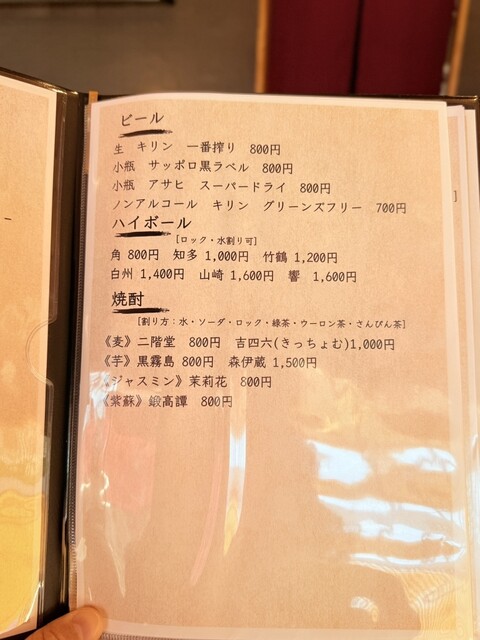 ビール
生 キリン 一番搾り 800円
小瓶 サッポロ黒ラベル 800円
小瓶 アサヒ スーパードライ 800円
ノンアルコール キリン グリーンズフリー 700円
ハイボール
[ロック・水割り可]
角 800円 知多 1,000円 竹鶴 1,200円
白州 1,400円 山崎 1,600円 響 1,600円
焼酎
[割り方:水・ソーダ・ロック・緑茶・ウーロン茶・さんぴん茶]
《麦》二階堂 800円 吉四六(きっちょむ)1,000円
《芋》黒霧島 800円 森伊蔵 1,500円
《ジャスミン》茉莉花 800円
《紫蘇》鍛高譚 800円